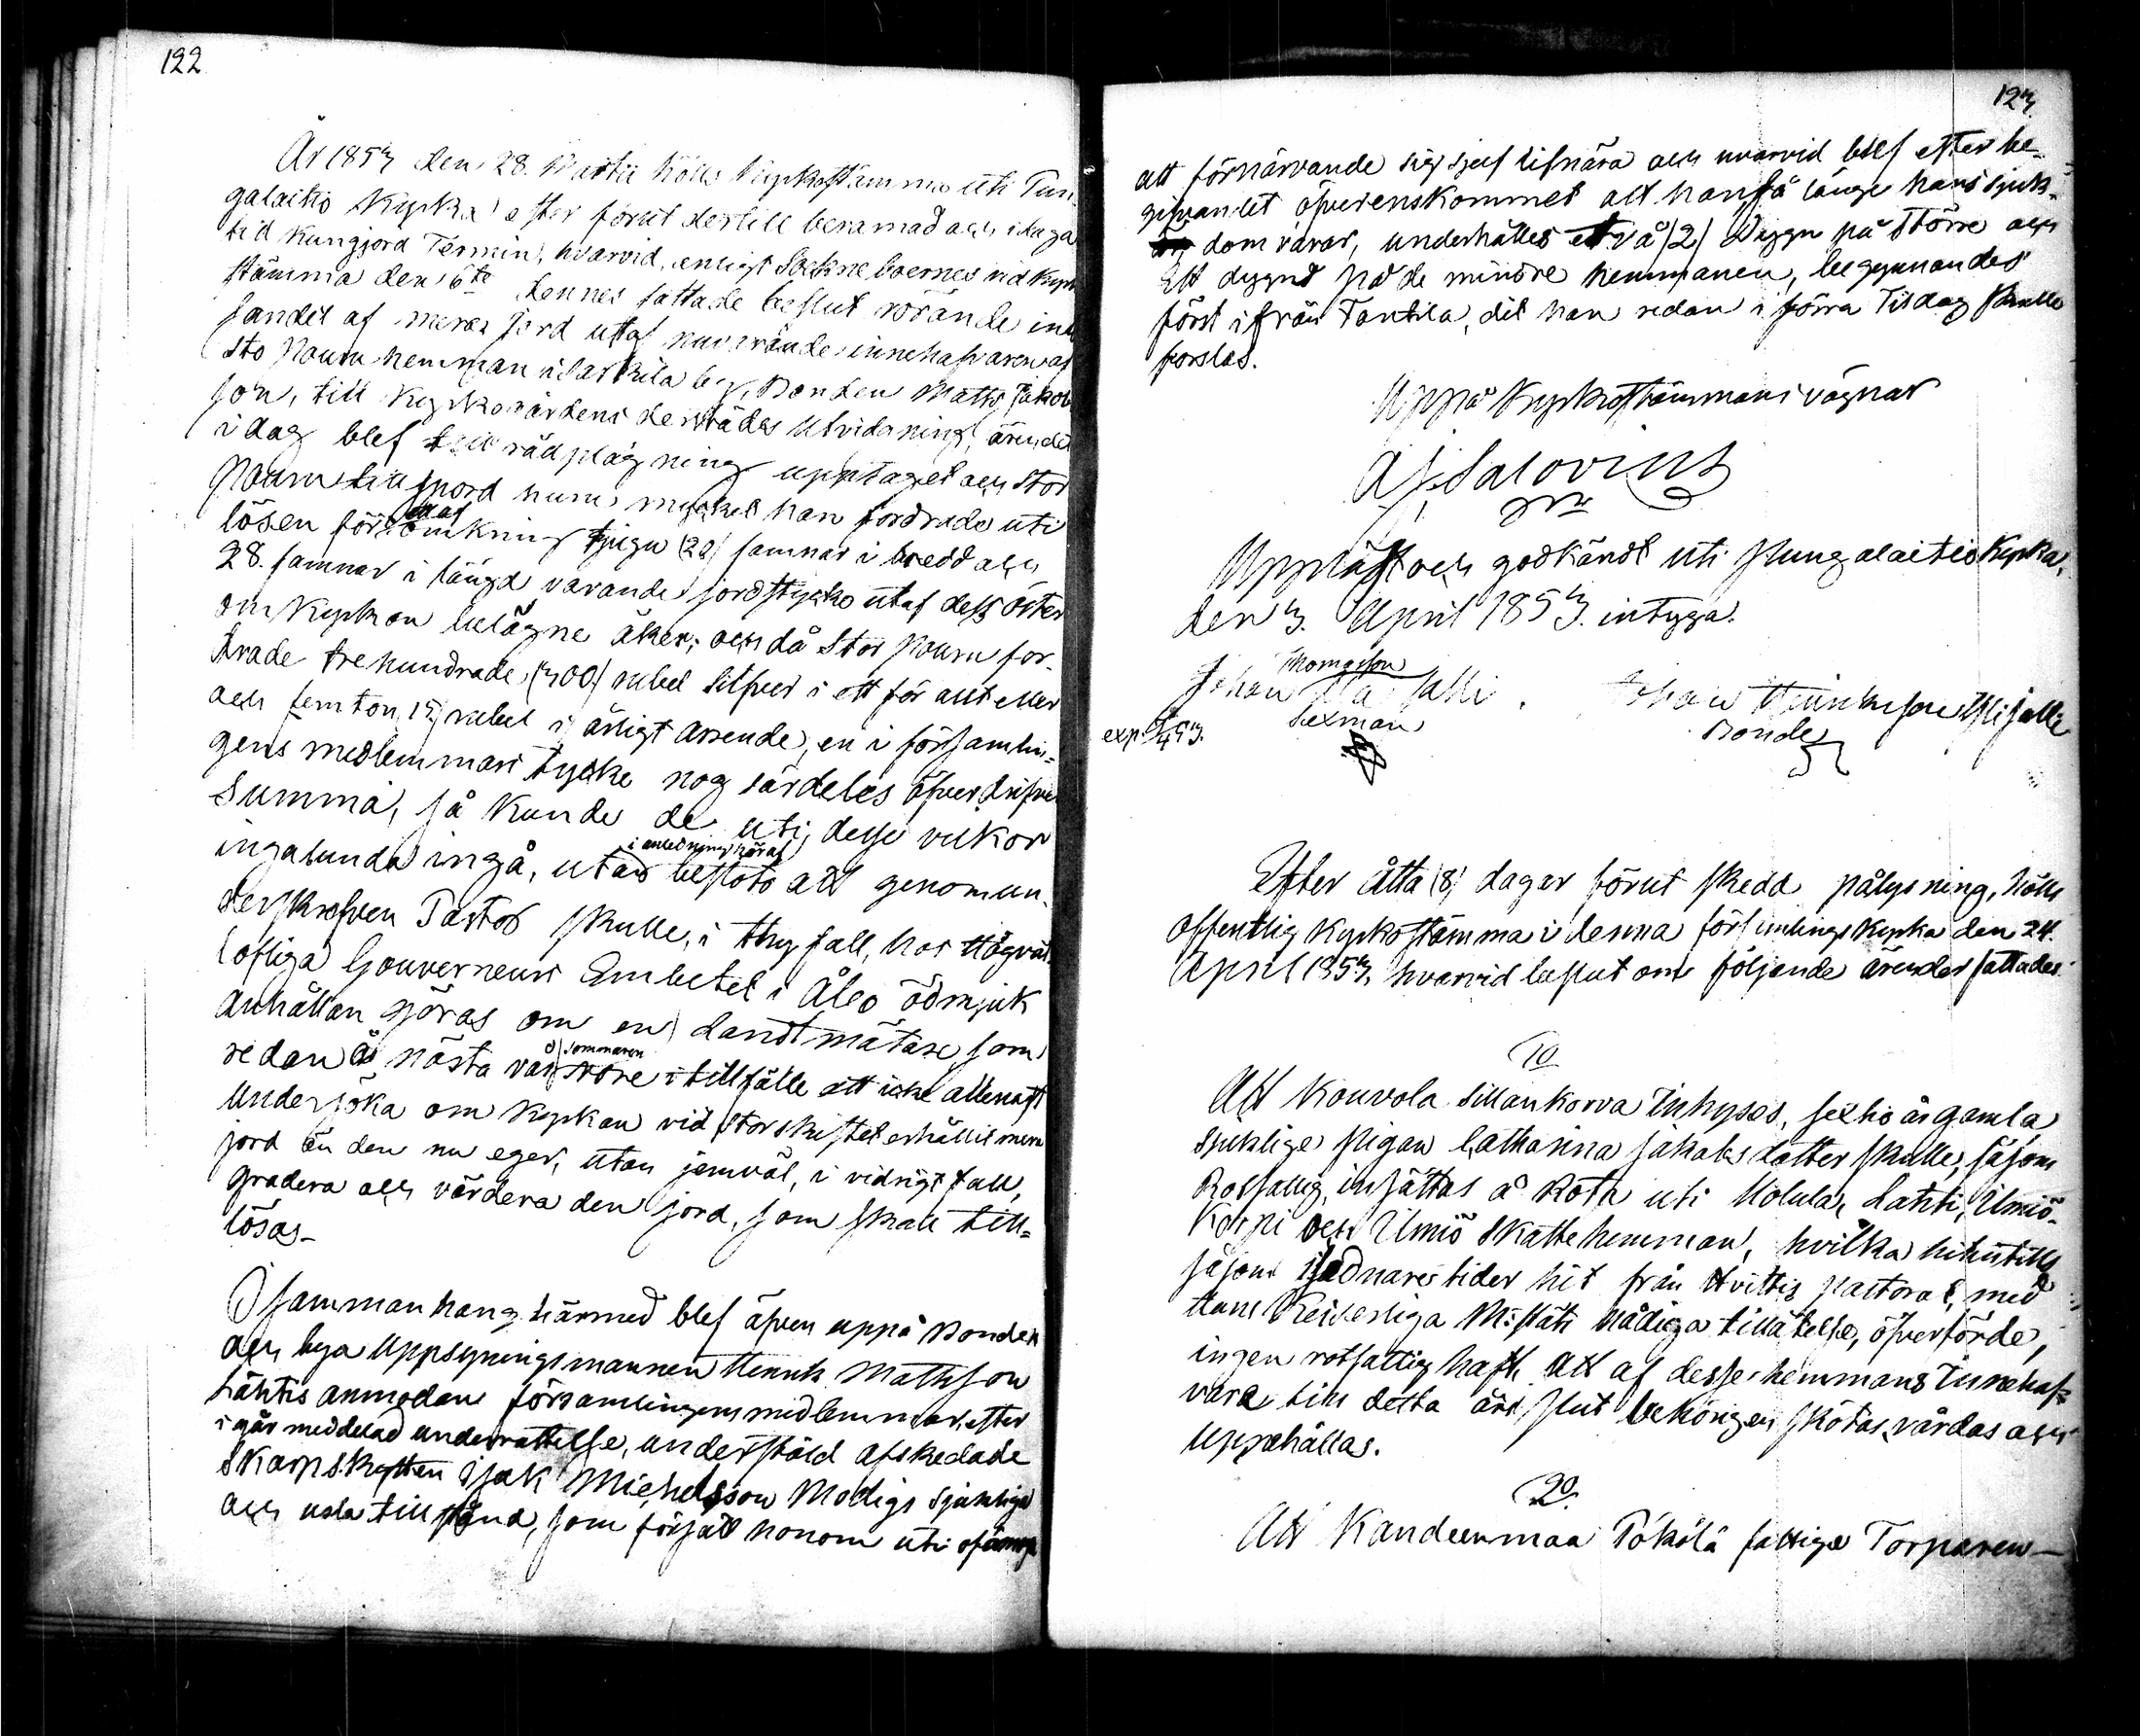 122
År 1853 den 28. Martii hölls Kyrkostämma uti Pun-
galaitio Kyrka efter förut dertill beramad och i laga
tid kungjord Termin, hvarvid, enligt Sockneboernes vid Kyrko
stämma den 6te dennes fattade beslut rörande inlö
sandet af mera jord utaf nuvarande innehafvaren af
Sto Pouru hemman i Sarkila by, Bonden Matts Jakobs
son, till Kyrkogårdens derstädes utvidgning, ärendet
i dag blef till rådplägning upptaget och Stor
Pouru tillspord huru mycket han fordrade uti
lösen för ett omkring tjugu (20) famnar i bredd och
28. famnar i längd varande jordstycke utaf dess öster
om Kyrkan belägne åker; och då Stor Pouru for-
drade trehundrade (300) rubel Silfver i ett för allt eller
och femton, 15, rubel i årligt arrende, en i församlin-
gens medlemmars tycke nog särdeles öfverdrifven
Summa, så kunde de uti desse vilkor
i anledning häraf
ingalunda ingå, utan beslöto att genom un-
derskrefven Pastor skulle, i thy fall, hos Högväl-
lofliga Gouverneurs Embetet i Åbo ödmjuk
anhållan göras om en Landtmätare, som
sommaren
redan å nästa vår vore i tillfälle att icke allenast
undersöka om Kyrkan vid storskiftet erhållit mera
jord än den nu eger, utan jemväl, i vidrigt fall,
gradera och värdera den jord, som skall till-
lösas.
I sammanhang härmed blef äfven uppå Bonden
och bya Uppsyningsmannen Henrik Mattsson
Lähtis anmodan församlingens medlemmar, efter
i går meddelad underrättelse, understäld afskedade
Skarpskytten Isak Michelsson Modigs sjukliga
och usla tillstånd, som försätt honom uti oförmåga
123.
att förnärvande sig sjelf lifnära och hvarvid blef efter be-
gifvandet öfverenskommet att han så länge hans sjuk-
dom varar, underhålles två (2) dygn på större och
Ett dygn på de mindre hemmanen, begynnandes
först ifrån Tantila, dit han redan i förra Tisdag skulle
forslas.
Uppå Kyrkostämmans vägnar
A J Salovius
Uppläst och godkändt uti Pungalaitio Kyrka,
den 3. April 1853. intyga.
Thomasson
Johan Ala Salli. Johan Henriksson Yli salli
Sexman Bonde
exp.
Efter åtta (8) dagar förut skedd pålysning, hölls
offentlig Kyrkostämma i denna församlings Kyrka den 24.
April 1853, hvarvid beslut om följande ärender fattades:
1o
Att Kouvola Sillankorva Inhyses, sextio år gamla
sjuklige pigan Catharina Jakobsdotter skulle, såsom
Rotfattig, insättas å Rote uti Uolula, Lahti, Ilmiö-
Korpi och Ilmiö Skattehemman, hvilka hitintills
såsom i sednare tider hit från Hvittis pastorat, med
Hans Keiserliga M:stäts Nådiga tillåtelse, öfverförde,
ingen rotfattig haft. Att af desse hemmans Innehaf-
vare till detta års slut behörigen skötas, vårdas och
uppehållas.
2o.
Att Kandeenmaa Pökölä fattige Torparen—